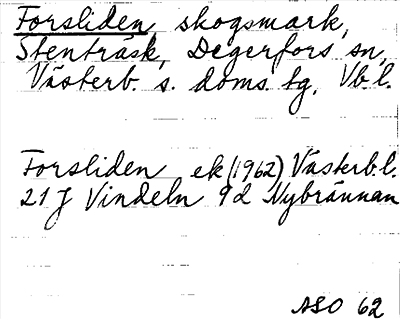 Forsliden, skogsmark,
Stenträsk, Degerfors sn,
Västerb. s. doms. tg, Vb.l.
Forsliden ek (1962) Västerb.l.
21 J Vindeln 9d Nybrännan
ASO 62